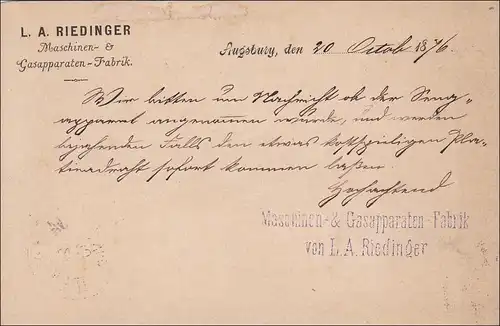 L. A. RIEDINGER
Maschinen- &
Gasapparaten-Fabrik.
Augsburg, den 20 Octob 1876.
Wir bitten um Nachricht ob der Seng-
apparat angenommen wurde, und werden
bejahenden Falls den etwas kostspieligen Pla-
tinadraht sofort kommen laßen.
Hochachtend
Maschinen- & Gasapparaten-Fabrik
von L. A. Riedinger